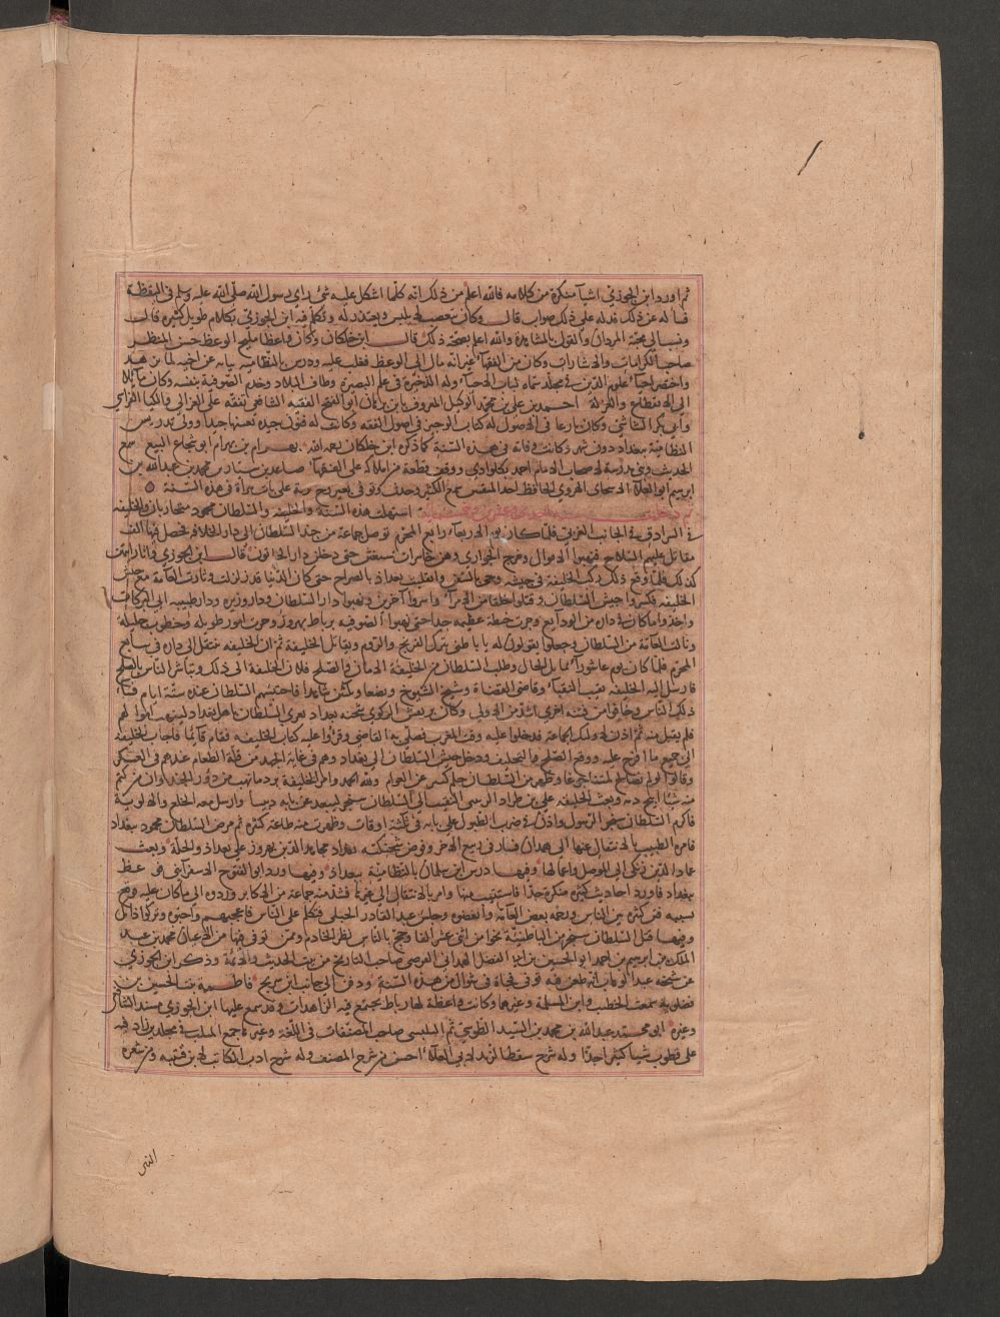 ثم اورد ابن الجوزي اشيا منكرة من كلامه فالله اعلم من ذلك انه كلما اشكل عليه شئ راى رسول الله صلى الله عليه وسلم في اليقظة
فساله عن ذلك فدله على ذلك صواب قال وكان يتعصب لابليس ويعتذر له وتكلم فيه ابن الجوزي بكلام طويل كثير قال
ونسب الى محبة المردان والقول بالمشاهدة والله اعلم بصحة ذلك قال ابن خلكان وكان واعظا مليح الوعظ حسن المنظر
صاحب كرامات واشارات وكان من الفقهاء غير انه مال الى الوعظ فغلب عليه ودرس بالنظامية نيابة عن اخيه لما تزهد
واختصر احياء علوم الدين في مجلد سماه لباب الاحياء وله الذخيرة في علم البصيرة وطاف البلاد وخدم الصوفية بنفسه وكان مائلا
الى الانقطاع والعزلة احمد بن علي بن محمد الوكيل المعروف بابن برهان ابو الفتح الفقيه الشافعي تفقه على الغزالي والكيا الهراسي
وابي بكر الشاشي وكان بارعا في الاصول له كتاب الوجيز في اصول الفقه وكانت له فنون جيدة يعينها جيدا وولي تدريس
النظامية ببغداد دون شهر وكانت وفاته في هذه السنة كما ذكره ابن خلكان رحمه الله بهرام بن بهرام ابو شجاع البيع سمع
الحديث وبنى مدرسة لاصحاب الامام احمد بكلواذى ووقف قطعة من املاكه على الفقهاء صاعد بن سيار بن محمد بن عبد الله بن
ابرهيم ابو العلاء الاسحاقي الهروي الحافظ احد المتقنين سمع الكثير وحدث وتوفي بغورج قرية على باب هراة في هذه السنة
استهلت هذه السنة والخليفة والسلطان محمود متحاربان والخليفة
في السرادق في الجانب الغربي فلما كان يوم الاربعاء رابع المحرم توصل جماعة من جند السلطان الى دار الخلافة فحصل فيها الف
مقاتل عليهم السلاح فنهبوا الاموال وخرج الجواري وهن حاسرات يستغثن حتى دخلن دار الخاتون قال ابن الجوزي وانا رايتهن
كذلك فلما وقع ذلك ركب الخليفة في جيشه وجئ بالسفن وانقلبت بغداد بالصراخ حتى كان الدنيا قد زلزلت وثارت العامة مع جيش
الخليفة فكسروا جيش السلطان وقتلوا خلقا من الامراء واسروا آخرين ونهبوا دار السلطان ودار وزيره ودار طبيبه ابي البركات
واخذوا ما كان في داره من الودايع وجرت خبطة عظيمة جدا حتى نهبوا الصوفية برباط بهروز وجرت امور طويلة وخطوب جليلة
ونالت العامة من السلطان وجعلوا يقولون له يا باطني تترك الفرنج والروم وتقاتل الخليفة ثم ان الخليفة انتقل الى داره في سابع
المحرم فلما كان يوم عاشوراء تماثل الحال وطلب السلطان من الخليفة الامان والصلح فلان الخليفة الى ذلك وتباشر الناس بالصلح
فارسل اليه الخليفة نقيب النقباء وقاضي القضاة وشيخ الشيوخ وبضعا وثلثين شاهدا فاحتبسهم السلطان عنده ستة ايام فساء
ذلك الناس وخافوا من فتنة اخرى اشد من الاولى وكان برنقش الزكوي شحنة بغداد يغري السلطان باهل بغداد لينهب اموالهم
فلم يقبل منه ثم اذن لاولئك الجماعة فدخلوا عليه وقت المغرب فصلى به القاضي وقرؤا عليه كتاب الخليفة فقام قائما فاجاب الخليفة
الى جميع ما اقترح عليه ووقع الصلح والتحليف ودخل جيش السلطان الى بغداد وهم في غاية الجهد من قلة الطعام عندهم في العسكر
وقالوا لو لم نصالح لمتنا جوعا وظهر من السلطان حلم كبير عن العوام ولله الحمد وامر الخليفة برد ما نهب من دور الجند وان من كتم
منه شيا ابيح دمه وبعث الخليفة علي بن طراد الزينبي النقيب الى السلطان سنجر ليبعد عن بابه دبيسا وارسل معه الخلع والالوية
فاكرم السلطان سنجر الرسول واذن في ضرب الطبول على بابه في ثلثة اوقات وظهرت منه طاعة كثيرة ثم مرض السلطان محمود ببغداد
فامره الطبيب بالانتقال عنها الى همدان فسار في ربيع الآخر وفوض شحنكية بغداد مجاهد الدين بهروز على بغداد والحلة وبعث
عماد الدين زنكي الى الموصل واعمالها وفيها درس ابن سلمان بالنظامية ببغداد وفيها ورد ابو الفتوح الاسفرايني فوعظ
ببغداد فاورد احاديث كثيرة منكرة جدا فاستتيب منها وامر بالانتقال الى غيرها فشد منه جماعة من الاكابر وردوه الى ما كان عليه فوقع
بسببه فتن كثيرة بين الناس ورجمه بعض العامة وابغضوه وجلس عبد القادر الجيلي فتكلم على الناس فاعجبهم واحبوه وتركوا ذاك
وفيها قتل السلطان سنجر من الباطنية نحوا من اثني عشر الفا وحج بالناس نظر الخادم وممن توفي فيها من الاعيان محمد بن عبد
الملك بن ابرهيم بن احمد ابو الحسين بن ابي الفضل الهمداني الفرضي صاحب التاريخ من بيت الحديث والائمة وذكر ابن الجوزي
عن شيخه عبد الوهاب انه طعن فيه توفي فجاة في شوال من هذه السنة ودفن الى جانب ابن سريج فاطمة بنت الحسين بن
فضلويه سمعت الخطيب وابن المسلمة وغيرهما وكانت واعظة لها رباط يجتمع فيه الزاهدات وقد سمع عليها ابن الجوزي مسند الشافعي
وغيره ابو محمد عبد الله بن محمد بن السيد البطليوسي ثم البلنسي صاحب المصنفات في اللغة وغيره جمع المثلث في مجلدين زاد فيه
على قطرب شيا كثيرا جدا وله شرح سقط الزند لابي العلاء احسن من شرح المصنف وله شرح ادب الكاتب لابن قتيبة ومن شعره